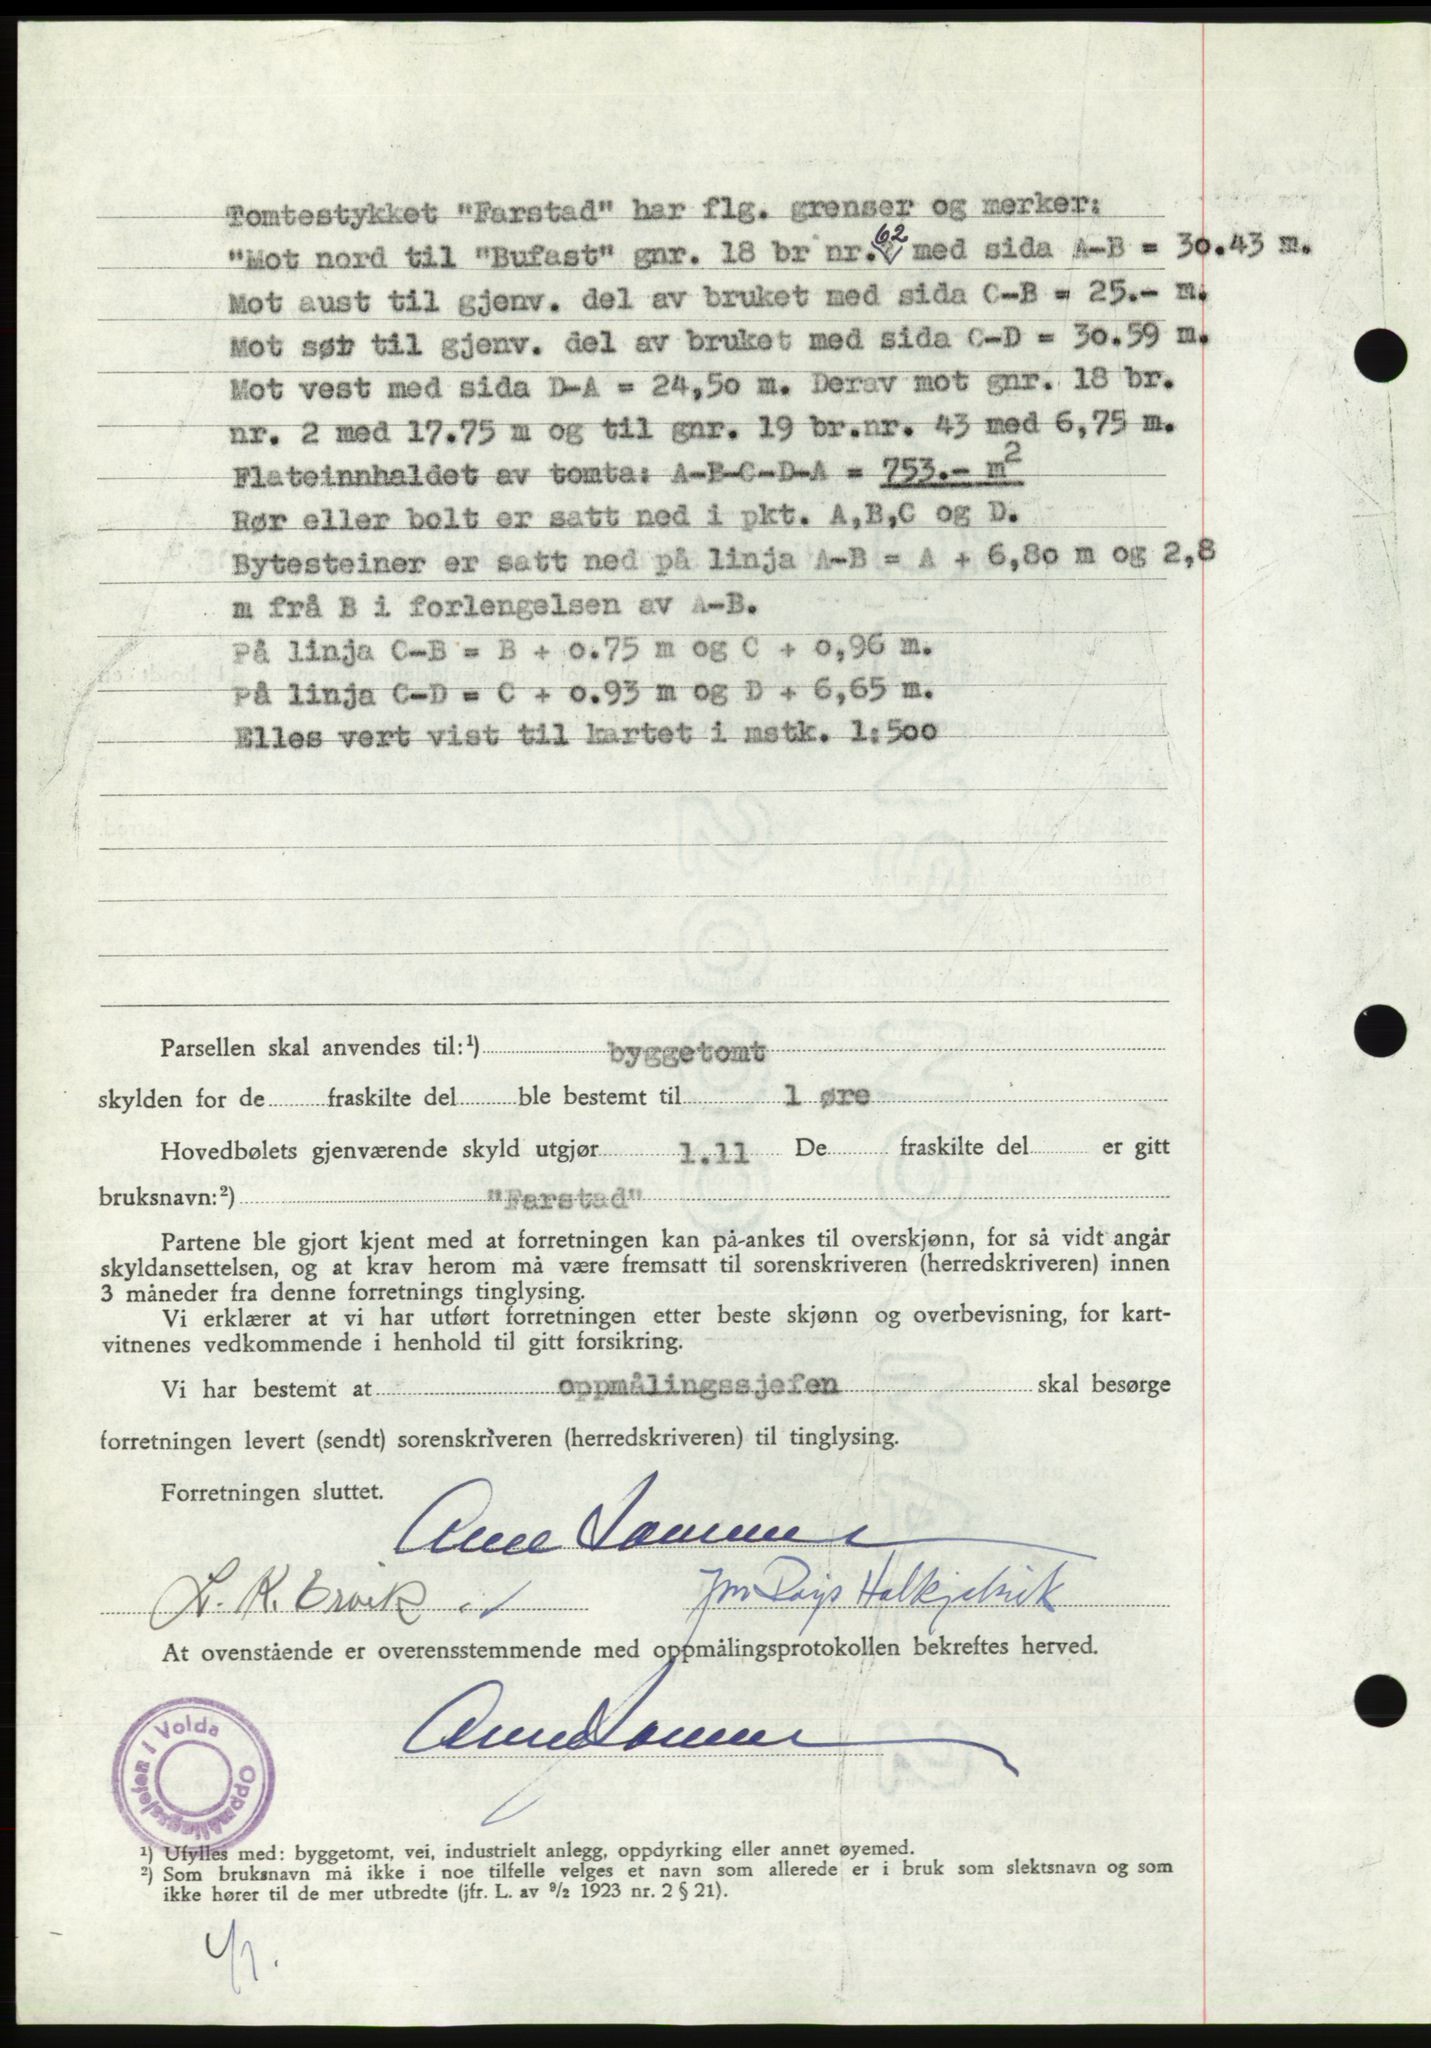 Tomtestykket "Farstad" har flg. grenser og merker:
"Mot nord til "Bufast" gnr. 18 br nr. 62 med sida A-B = 30.43 m.
Mot aust til gjenv. del av bruket med sida C-B = 25.- m.
Mot sør til gjenv. del av bruket med sida C-D = 30.59 m.
Mot vest med sida D-A = 24,50 m. Derav mot gnr. 18 br.
nr. 2 med 17.75 m og til gnr. 19 br.nr. 43 med 6,75 m.
Flateinnhaldet av tomta: A-B-C-D-A = 753.- m²
Rør eller bolt er satt ned i pkt. A,B,C og D.
Bytesteiner er satt ned på linja A-B = A + 6,80 m og 2,8
m frå B i forlengelsen av A-B.
På linja C-B = B + 0.75 m og C + 0,96 m.
På linja C-D = C + 0.93 m og D + 6,65 m.
Elles vert vist til kartet i mstk. 1:500
Parsellen skal anvendes til:¹) byggetomt
skylden for de fraskilte del ble bestemt til 1 øre
Hovedbølets gjenværende skyld utgjør 1.11 De fraskilte del er gitt
bruksnavn:²) "Farstad"
Partene ble gjort kjent med at forretningen kan på-ankes til overskjønn, for så vidt angår
skyldansettelsen, og at krav herom må være fremsatt til sorenskriveren (herredskriveren) innen
3 måneder fra denne forretnings tinglysing.
Vi erklærer at vi har utført forretningen etter beste skjønn og overbevisning, for kart-
vitnenes vedkommende i henhold til gitt forsikring.
Vi har bestemt at oppmålingssjefen skal besørge
forretningen levert (sendt) sorenskriveren (herredskriveren) til tinglysing.
Forretningen sluttet.
L. K. Ervik
At ovenstående er overensstemmende med oppmålingsprotokollen bekreftes herved.
Oppmålingssjefen i Volda
¹) Ufylles med: byggetomt, vei, industrielt anlegg, oppdyrking eller annet øyemed.
²) Som bruksnavn må ikke i noe tilfelle velges et navn som allerede er i bruk som slektsnavn og som
ikke hører til de mer utbredte (jfr. L. av ⁹/₂ 1923 nr. 2 § 21).